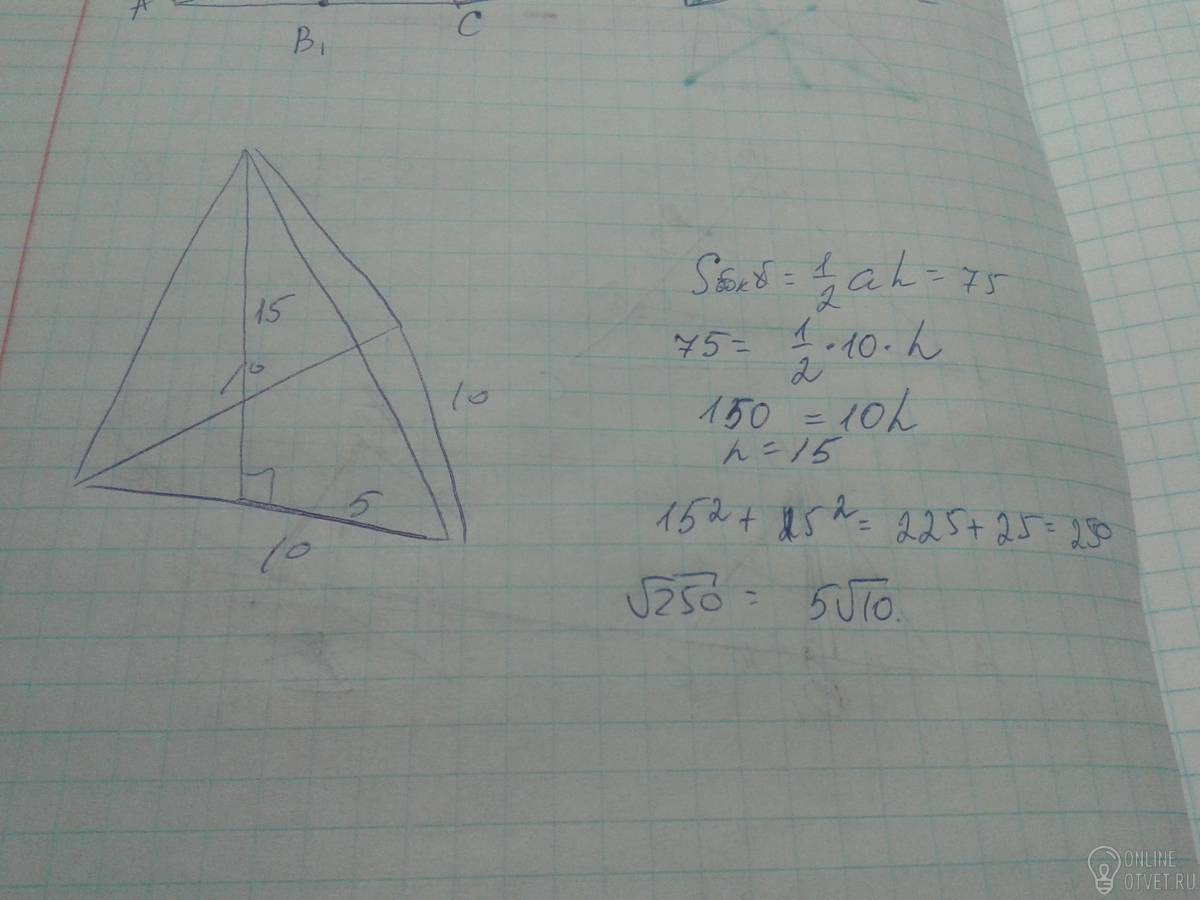 A
B₁
C
15
10
10
5
10
Sбок = 1/2 ah = 75
75 = 1/2 · 10 · h
150 = 10h
h = 15
15² + 5² = 225 + 25 = 250
√250 = 5√10.
ONLINE
OTVET.RU